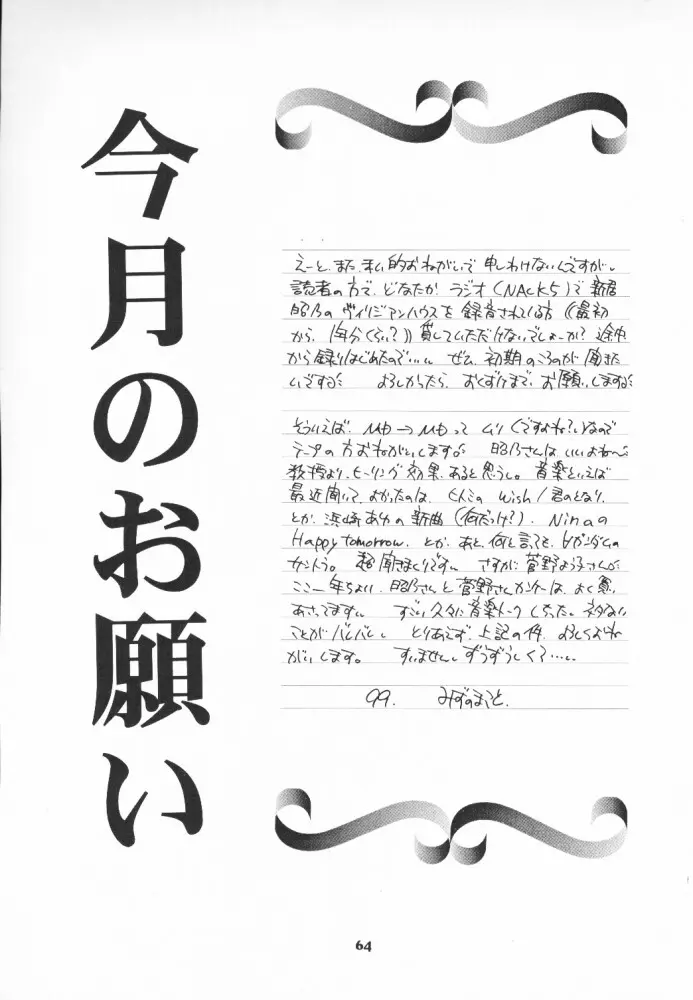 今月のお願い
えーと、また、私的おねがいで 申しわけないんですが。
読者の方で、どなたか ラジオ(NACK5)で 新居
昭乃の ヴィリジアンハウスを 録音されている方 《最初
から、1年分くらい?》貸していただけないでしょーか? 途中
から録りはじめたので…。 ぜひ、初期のころのが 聞きた
いです。 よろしかったら、おくづけまで、お願いします。
そういえば、MD→MDって ムリ(ですよね?)なので
テープの方おねがいします。 昭乃さんは いいよね〜
教授より、ヒーリング 効果、あると思うし。 音楽といえば
最近聞いて、よかったのは、 wish/君のとなり、
とか、浜崎あゆの新曲(何だっけ?)、Ninaの
Happy tomorrow、とか、あと、何と言っても、∀ガンダムの
サントラ。 超聞きまくりです。 さすがに 菅野よう子さんが
ここ一年ちょい、昭乃さんと 菅野さんは、よく買い
あさってます。 すごい久々に 音楽トークしちった。ネタない
ことがバレバレ。 とりあえず、上記の件、よろしくおね
がいします。 すいません。ずうずうしくて…。
99. みずのまこと.
64